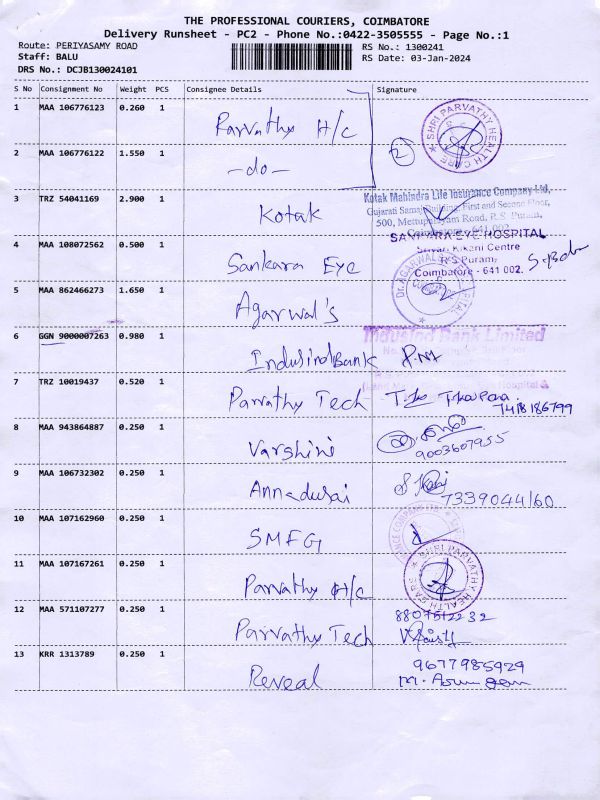 THE PROFESSIONAL COURIERS, COIMBATORE
Delivery Runsheet - PC2 - Phone No.:0422-3505555 - Page No.:1
Route: PERIYASAMY ROAD
RS No.: 1300241
Staff: BALU
RS Date: 03-Jan-2024
DRS No.: DCJB130024101
S No Consignment No Weight PCS Consignee Details Signature
1 MAA 106776123 0.260 1 Parvathy H/C
SHRI PARVATHY HEALTH CARE
2 MAA 106776122 1.550 1 -do- 2
3 TRZ 54041169 2.900 1 Kotak
Kotak Mahindra Life Insurance Company Ltd,
Gujarati Samaj Building, First and Second Floor,
500, Mettupalayam Road, R.S. Puram,
Coimbatore - 641 002
4 MAA 108072562 0.500 1 Sankara Eye
SANKARA EYE HOSPITAL
Kikani Centre
R S Puram,
Coimbatore - 641 002.
5 MAA 862466273 1.650 1 Agarwal's
Dr. AGARWAL'S HOSPITAL
6 GGN 9000007263 0.980 1 Indusind Bank
IndusInd Bank Limited
7 TRZ 10019437 0.520 1 Parvathy Tech
8 MAA 943864887 0.250 1 Varshini
9003607955
9 MAA 106732302 0.250 1 Annadurai
7339044160
10 MAA 107162960 0.250 1 SMFG
11 MAA 107167261 0.250 1 Parvathy H/C
SHRI PARVATHY HEALTH CARE
12 MAA 571107277 0.250 1 Parvathy Tech
13 KRR 1313789 0.250 1 Reveal
9677985929